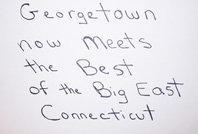 Georgetown
now meets
the Best
of the Big East
Connecticut